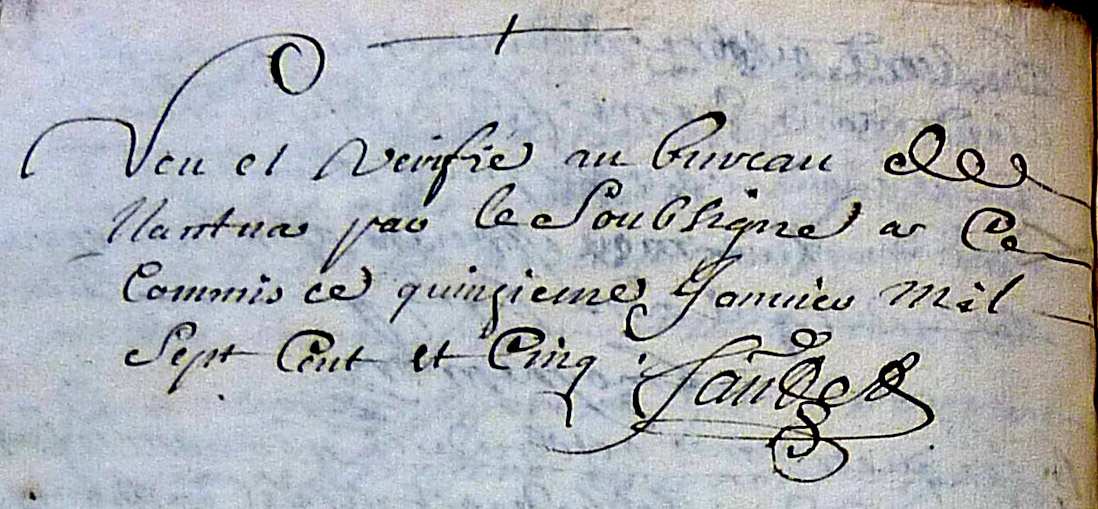 Veu et verifié au bureau de
Nantua par le Soubsigné a ce
Commis ce quinzieme Janvier mil
Sept Cent et Cinq